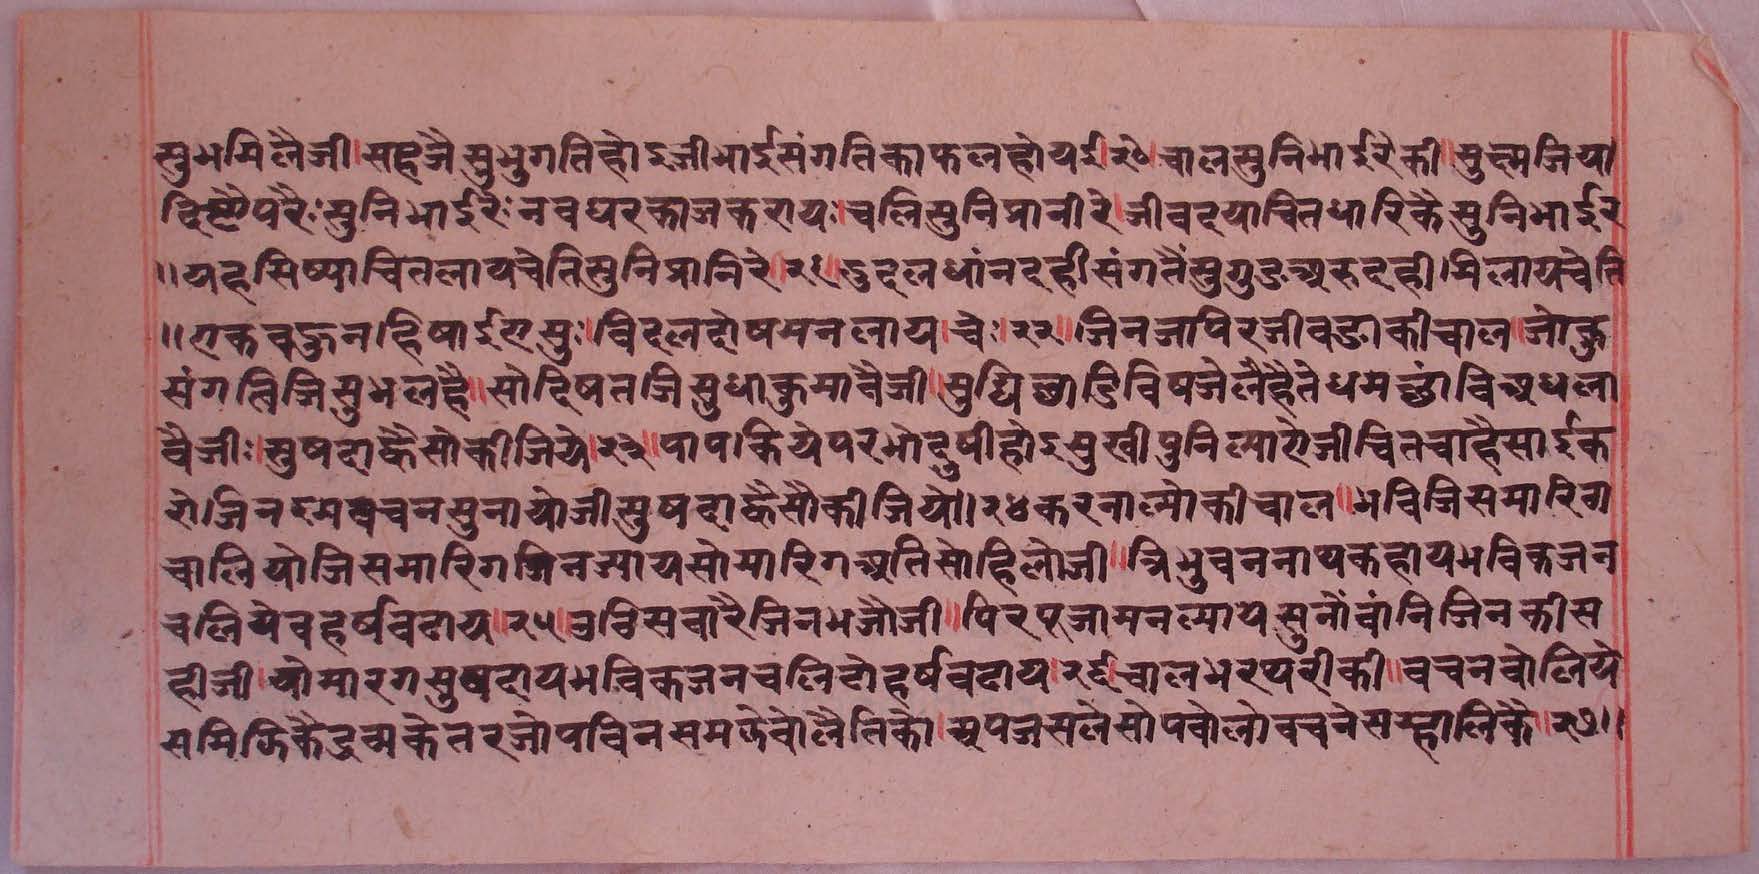 सुभमिलैजी।सहजैसुभुगतिहोइजीभाईसंगतिकाफलहोयई।२०।चालसुनिभाईरैकी॥सुदमजिया।
परैः।सुनिभाईरेः।नवघरकाजकरायः।चलिसुनिप्रानीरे।जीवदयाचितधारिकैसुनिभाईर
॥यहसिष्याचितलायचेतिसुनिप्रानिरे॥२१॥दुदलधांनदहीसंगतैंसुगुडअरुदही।मिलायचेति
॥एकवहुनहिषाईएसुः।विदलदोषमनलाय।चेः।२२॥जिनजापिरजीवडाकीचाल॥जोकु
संगतिजिसुभलहै॥सोहिषतजिसुधाकुमावैजी॥सुघिछाडिविषजेलैहैतेधमछांविअधला
वैजीः।सुषदाह्वैसोकीजिये।२३॥पापकियेपरभोदुषीहोइसुखीपुनिल्याएजीचितचाहैसाईक
रो।जिनदमवचनसुनायोजीसुषदाह्वैसौकीजियो।२४करनाल्मोकीचाल॥भविजिसमारिग
चालियोजिसमारिगजिनआयसोमारिगअतिसोहिलोजी॥त्रिभुवननायकहोयभविकजन
चलियेवहर्षवढाय॥२५॥चविसवारैजिनभजौजी॥पिरपूजामनल्यायेसुनोंवांनिजिनकीस
हीजी।योमारगसुषदायभविकजनचलिदोहर्षवढाय।२६।चालभरथरीकी॥वचनवोलिये
समिझिकैदुमकेतरजोषविनसमझेवोलैतिको।अपजसलेसोपवोलोवचनेसम्हालिकै।२७॥